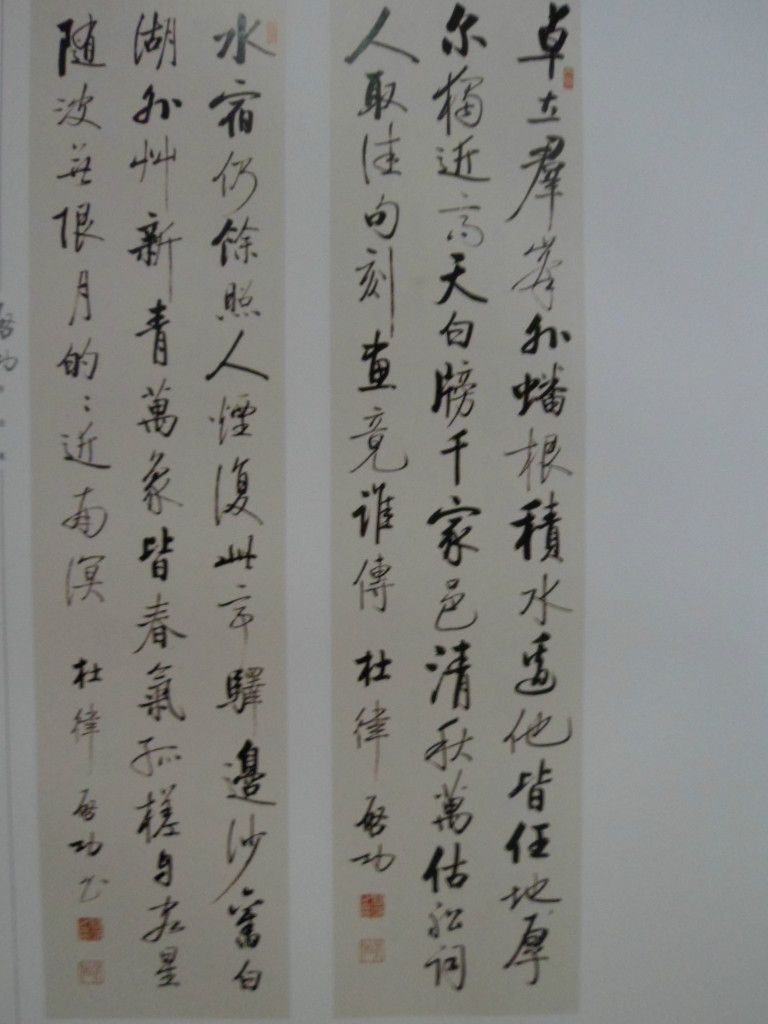 卓立羣峯外蟠根積水邊他皆任地厚
尔獨近高天白牓千家邑清秋萬估船詞
人取佳句刻畫竟誰傳 杜律 啟功
水宿仍餘照人煙復此亭驛邊沙舊白
湖外艸新青萬象皆春氣孤槎自客星
随波無限月的〻近南溟 杜律 啟功書